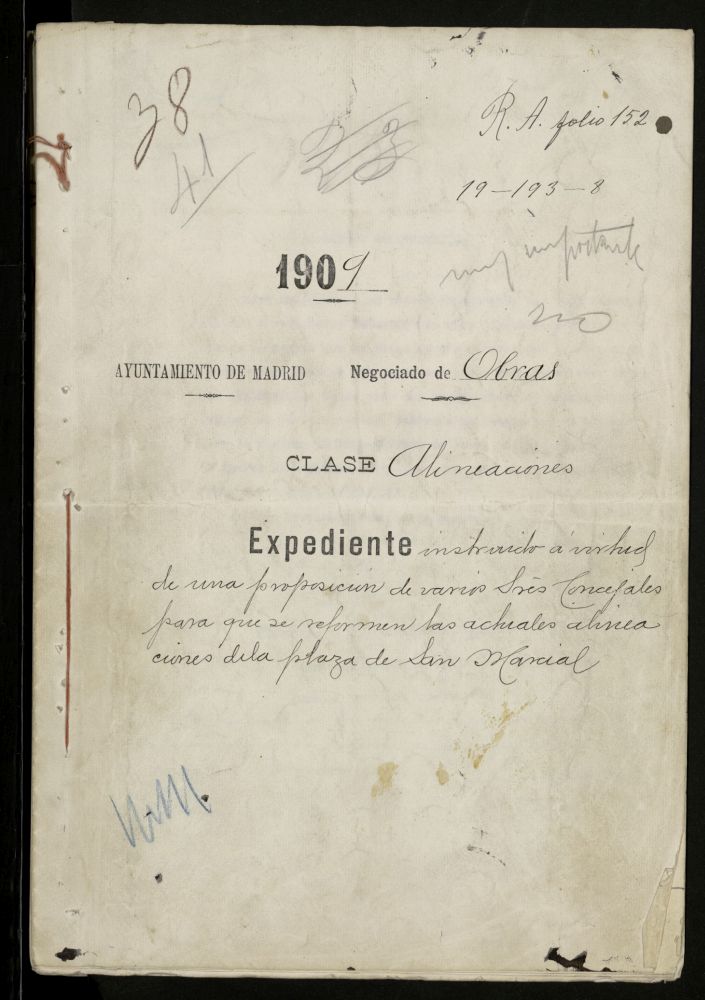 38
41
23
R. A. folio 152
19-193-8
muy importante
no
1909
AYUNTAMIENTO DE MADRID Negociado de Obras
CLASE Alineaciones
Expediente instruido á virtud
de una proposición de varios Sres Concejales
para que se reformen las actuales alinea
ciones de la plaza de San Marcial